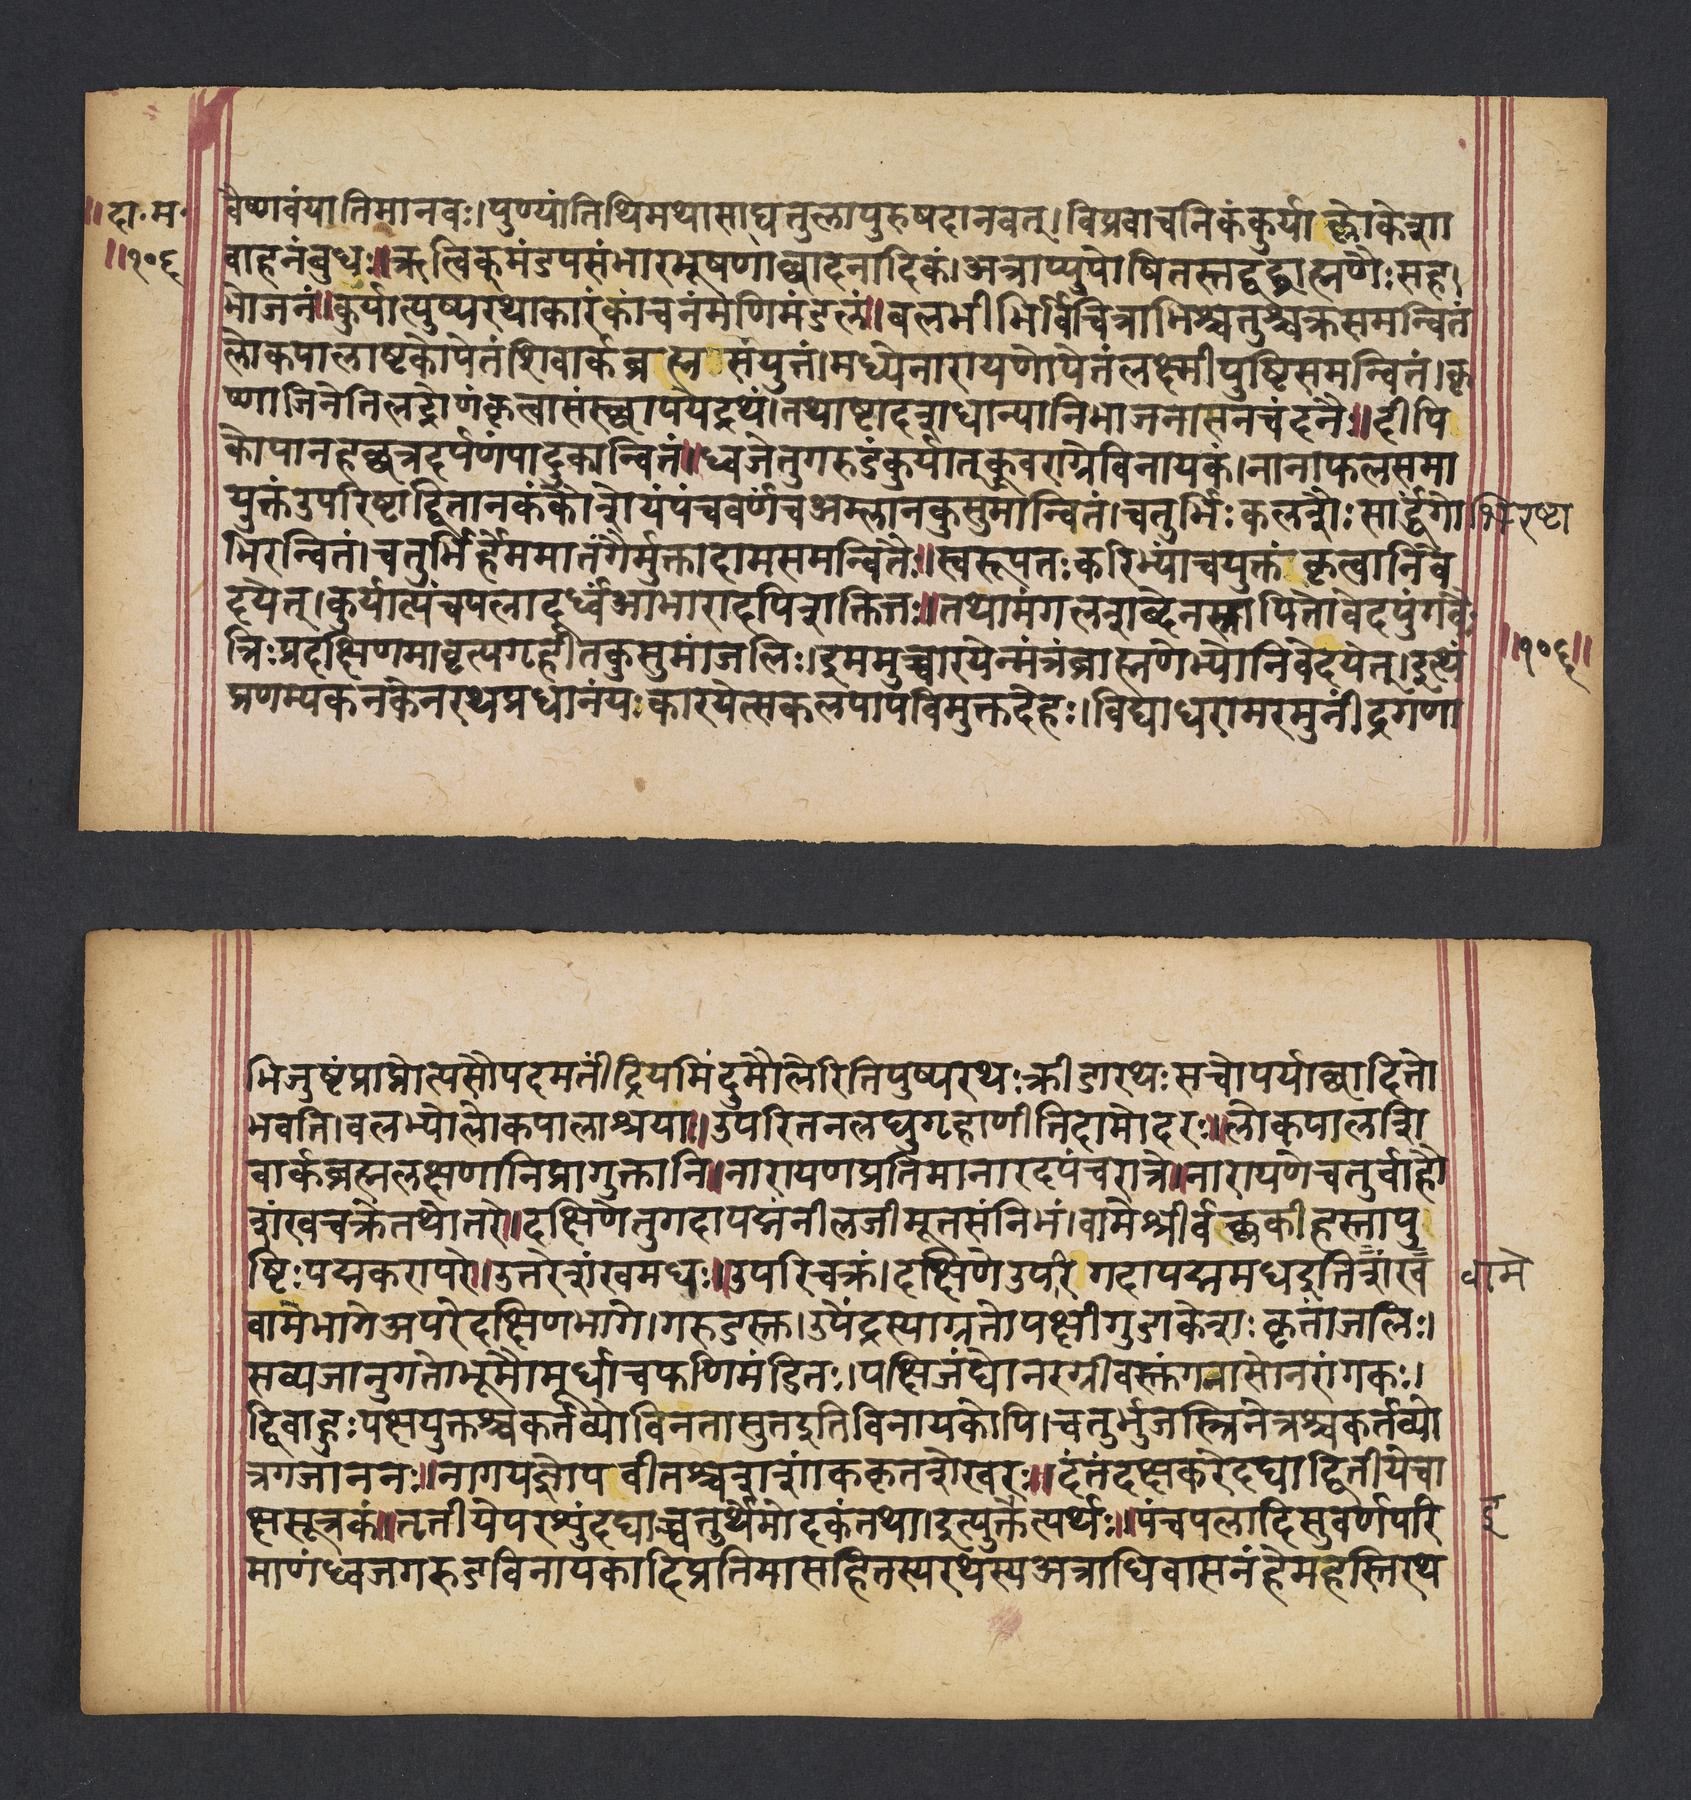 ॥दा॰म॰
॥१०६
वैष्णवंयातिमानवः।पुण्यांतिथिमथासाद्यतुलापुरुषदानवत्।विप्रवाचनिकंकुर्याल्लोकेशा
वाहनंबुधः॥ऋत्विक्मंडपसंभारभूषणाच्छादनादिकं।अत्राप्युपोषितस्तद्वद्ब्राह्मणैःसह।
भोजनं॥कुर्यात्पुष्परथाकारंकांचनंमणिमंडलं॥वलभीभिर्विचित्राभिश्चतुश्चक्रसमन्वितं
लोकपालाष्टकोपेतंशिवार्कब्रह्मसंयुतं।मध्येनारायणोपेतंलक्ष्मीपुष्टिसमन्वितं।कृ
ष्णाजिनेतिलद्रोणंकृत्वासंस्थापयेद्रथं।तथाष्टादशधान्यानिभाजनासनचंदनैः॥दीपि
कोपानहच्छत्रदर्पणंपादुकान्वितं॥ध्वजेतुगरुडंकुर्यात्कूबराग्रेविनायकं।नानाफलसमा
युक्तंउपरिष्टाद्वितानकंकौशेयंपंचवर्णंचअम्लानकुसुमान्वितं।चतुर्भिःकलशैःसार्द्धंगो
भिरष्टा
भिरन्वितं।चतुर्भिर्हेममातंगैर्मुक्तादामसमन्वितैः॥स्वरूपतःकरिभ्यांचयुक्तं कृत्वानिवे
दयेत्।कुर्यात्पंचपलादूर्ध्वंआभारादपिशक्तितः॥तथामंगलशब्देनस्नापितोवेदपुंगवैः
त्रिःप्रदक्षिणमावृत्यगृहीतकुसुमांजलिः।इममुच्चारयेन्मंत्रंब्राह्मणेभ्योनिवेदयेत्।इत्थं
॥१०६॥
प्रणम्यकनकेनरथप्रधानंयःकारयेत्सकलपापविमुक्तदेहः।विद्याधरामरमुनींद्रगणा
भिजुष्टंप्राप्नोत्यसौपदमतींद्रियमिंदुमौलेरितिपुष्परथःक्रीडारथःसचोपर्याच्छादितो
भवति।वलभ्योलोकपालाश्रयाः॥उपरितनलघुगृहाणीतिदामोदरः॥लोकपालशि
वार्कब्रह्मलक्षणानिप्रागुक्तानि॥नारायणप्रतिमानारदपंचरात्रे॥नारायणेचतुर्बाहौ
शंखचक्रेतथोत्तरे॥दक्षिणेतुगदापद्मंनीलजीमूतसंनिभं।वामेश्रीर्वल्लकीहस्तापु
ष्टिःपद्मकरापरे॥उत्तरेशंखमधः॥उपरिचक्रं।दक्षिणेउपरि गदापद्ममधइतिशंखं
वामे
वामेभागेअपरेदक्षिणभागे।गरुडस्तु।उपेंद्रस्याग्रतोपक्षीगुडाकेशःकृतांजलिः।
सव्यजानुगतोभूमौमूर्धाचफणिमंडितः।पक्षिजंघोनरग्रीवस्तुंगनासोनरांगकः।
द्विबाहुःपक्षयुक्तश्चकर्तव्योविनतासुतइतिविनायकोपि।चतुर्भुजस्त्रिनेत्रश्चकर्तव्यो
त्रगजाननः॥नागयज्ञोपवीतश्चशशांककृतशेखरः॥दंतंदक्षकरेदद्याद्वितीयेचा
क्षसूत्रकं॥तृतीयेपरशुंदद्याच्चतुर्थेमोदकंतथा।इत्युक्तेत्यर्थः॥पंचपलादिसुवर्णपरि
इ
माणंध्वजगरुडविनायकादिप्रतिमासहितस्यरथस्यअत्राधिवासनंहेमहस्तिरथ